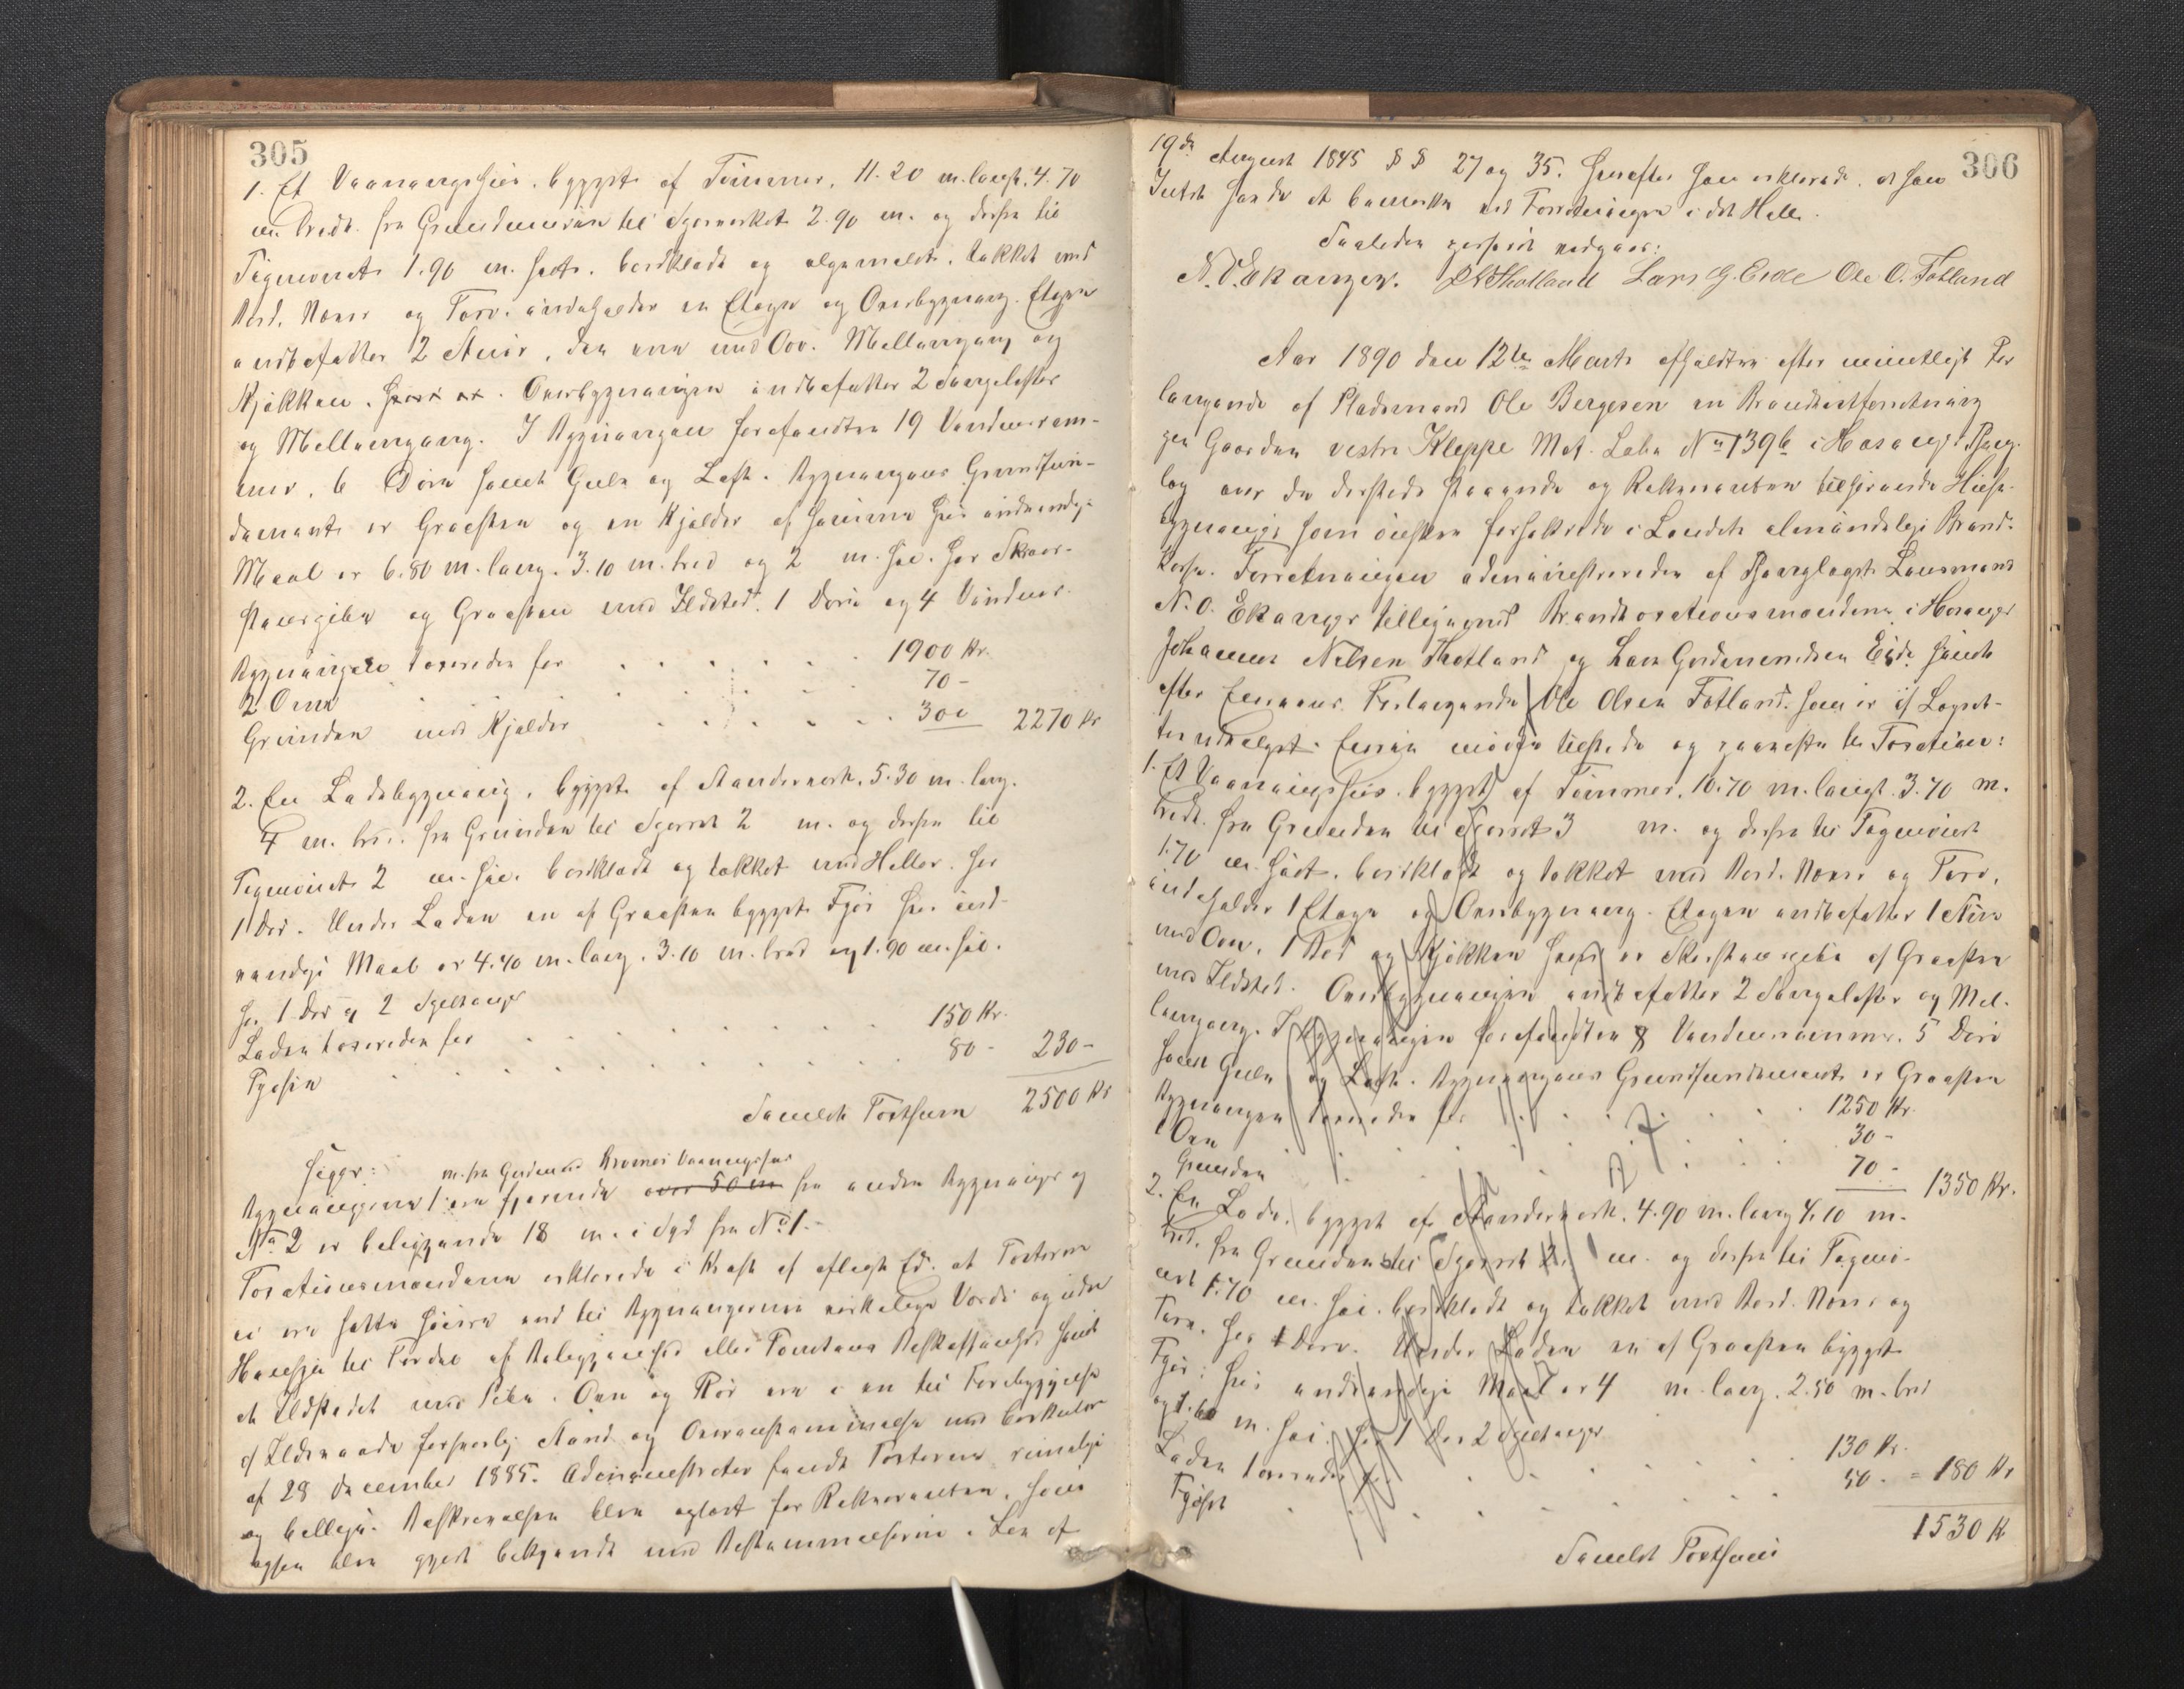 305
1. Et Vaaningshus, bygget af Tømmer, 11.20 m. langt, 4.70
m. bredt, fra Grundmuren til Sperverket 2.90 m. og derfra til
Tagmønet 1.90 m. høit, bordklædt og oljemalet, tækket med
Bord, Næver og Torv, indeholder en Etage og Overbygning. Etagen
indbefatter 2 Stuer, den ene med Ovn, Mellemgang og
Kjøkken. Overbygningen indbefatter 2 Sængelofter
og Mellemgang. I Bygningen forefandtes 19 Vinduesram-
mer, 6 Døre samt Gulv og Loft. Bygningens Grundfun-
dament er Graasten og en Kjelder af samme hvis indvendige
Maal er 6.80 m. lang, 3.10 m. bred og 2 m. høi, har Skor-
stenspibe og Graasten med Ildsted, 1 Dør og 4 Vinduer.
Bygningen taxeredes for . . . . . . 1900 Kr.
2 Ovne . . . . . . 70 -
Grunden med Kjelder . . . . . . 300 2270 Kr
2. En Ladebygning, bygget af Standerverk, 5.30 m. lang,
4 m. bred, fra Grunden til Sperret 2 m. og derfra til
Tagmønet 2 m. høi, bordklædt og tækket med Heller, har
1 Dør. Under Laden en af Graasten bygget Fjøs hvis ind-
vendige Maal er 4.40 m. lang, 3.10 m. bred og 1.90 m. høi.
har 1 Dør og 2 Spelhanger
Laden taxeredes for . . . . . . 150 Kr.
Fjøsen . . . . . . 80 - 230 -
Samlet Taxtsum 2500 Kr
m. fra Vaaningshus
Bygningerne 1 ere fjernede over 50 m fra anden Bygninger og
No 2 er beliggende 18 m. i Syd fra No 1.
Taxationsmændene erklærede i Kraft af aflagt Ed, at Taxterne
ei ere satte høiere end til Bygningernes virkelige Værdi og uden
Hensyn til Fordel af Beliggenhed eller Tomtens Beskaffenhed samt
at Ildstedet med Pibe, Ovn og Rør ere i en til Forebyggelse
af Ildsvaade forsvarlig Stand og Overensstemmelse med Cirkulær
af 28 December 1885. Administrator fandt Taxterne rimelige
og billige. Beskrivelsen blev oplæst for Rekvirenten, som
ogsaa blev gjort bekjendt med Bestemmelserne i Lov af
306
19de August 1845 §§ 27 og 35. Hvorefter han erklærede, at han
Intet havde at bemærke ved Forretningen i det Hele.
Saaledes passeret vedgaar:
N. O. Ekanger. J N Hotland Lars G. Eide Ole O. Fotland
Aar 1890 den 12te Marts afholdtes efter mundtligt For
langende af Pladsmand Ole Bergesen en Brandtaxtforretning
paa Gaarden vestre Kleppe Mat. Løbe No 139b i Hosanger Thing-
lag over de dersteds staaende og Rekvirenten tilhørende Huse-
bygninger som ønskes forsikrede i Landets almindelige Brand-
kasse. Forretningen administreredes af Thinglagets Lensmand
N. O. Ekanger tilligemed Brandtaxationsmændene i Hosanger
Johannes Nilsen Hotland og Lars Gudmundsen Eide samt
efter Eierens Forlangende Ole Olsen Fotland, som er af Lagret-
ten udvalgt. Eieren mødte tilstede og paaviste til Taxation:
1. Et Vaaningshus, bygget af Tømmer, 10.70 m. langt, 3.70 m.
bredt, fra Grunden til Sperret 3 m. og derfra til Tagmønet
1.70 m. høit, bordklædt og tækket med Bord, Næver og Torv,
indeholder 1 Etage og Overbygning. Etagen indbefatter 1 Stue
med Ovn, 1 Bod og Kjøkken hvori er Skorstenspibe af Graasten
med Ildsted. Overbygningen indbefatter 2 Sængelofter og Mel-
lemgang. I Bygningen forefandtes 8 Vinduesrammer, 5 Døre
samt Gulv og Loft. Bygningens Grundfundament er Graasten
Bygningen taxeredes for . . . . . . 1250 Kr.
1 Ovn . . . . . . 30 -
Grunden . . . . . . 70 - 1350 Kr.
2. En Lade, bygget af Standerverk, 4.90 m. lang 4.10 m.
bred, fra Grunden til Sperret 2 m. og derfra til Tagmø-
net 1.70 m. høi, bordklædt og tækket med Bord, Næver og
Torv, har 1 Dør. Under Laden en af Graasten bygget
Fjøs, hvis indvendige Maal er 4 m. lang, 2.50 m. bred
og 1.60 m. høi, har 1 Dør 2 Spelhanger
Laden taxeredes for . . . . . . 130 Kr.
Fjøset . . . . . . 50 - = 180 Kr
Samlet Taxtsum 1530 Kr